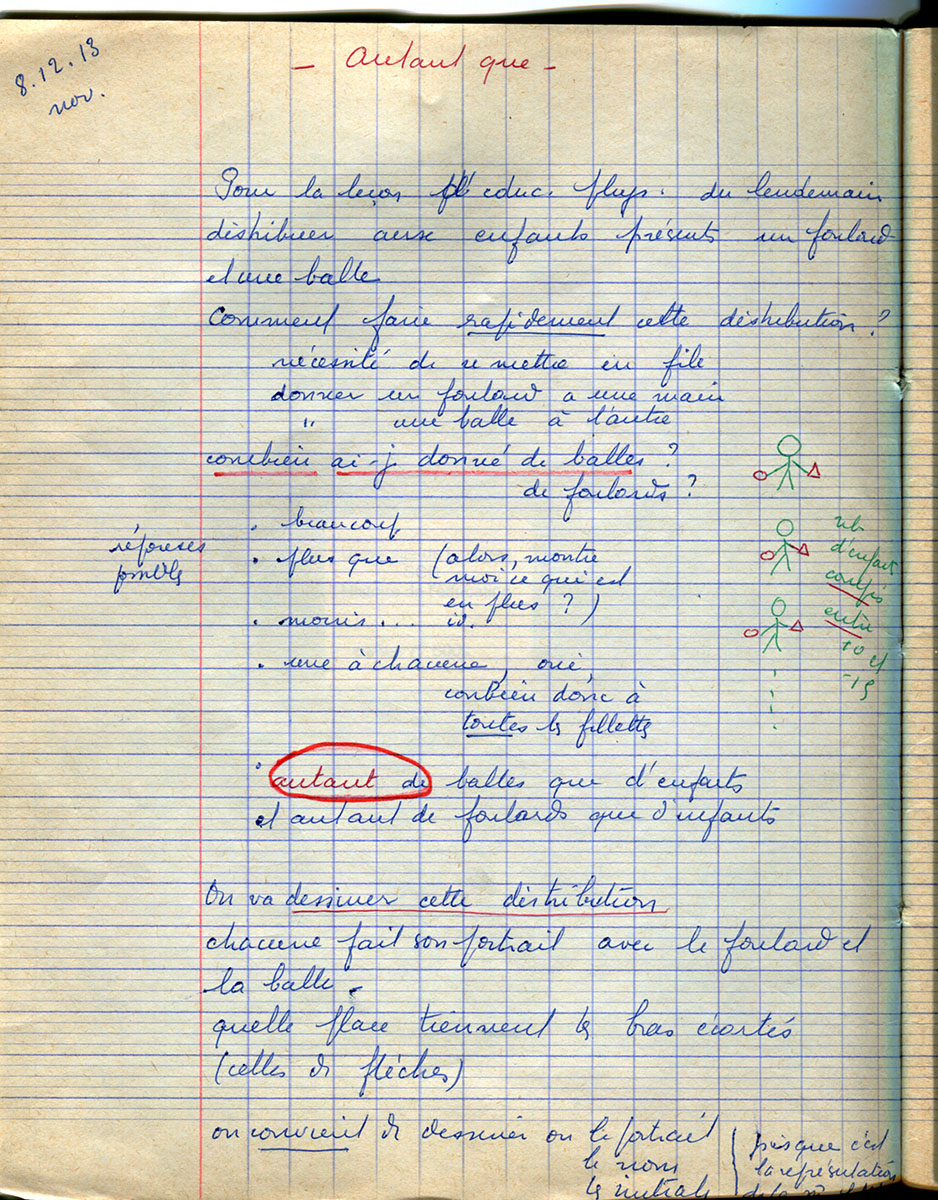 8.12.13
nov.
- Autant que -
Pour la leçon d'éduc. phys. du lendemain
distribuer aux enfants présents un foulard
et une balle
Comment faire rapidement cette distribution ?
nécessité de se mettre en file
donner un foulard a une main
" une balle à l'autre
combien ai-j donné de balles ?
de foulards ?
réponses
possibles
. beaucoup
. plus que (alors, montre
moi ce qui est
en plus ? )
. moins ... id.
. une à chacune, oui,
combien donc à
toutes les fillettes
nb.
d'enfants
compris
entre
10 et
15
. autant de balles que d'enfants
et autant de foulards que d'enfants
On va dessiner cette distribution
chacune fait son portrait avec le foulard et
la balle.
quelle place tiennent les bras écartés
(celles de flèches)
on convient de dessiner ou le portrait
le nom
les initiales
puisque c'est
la représentation